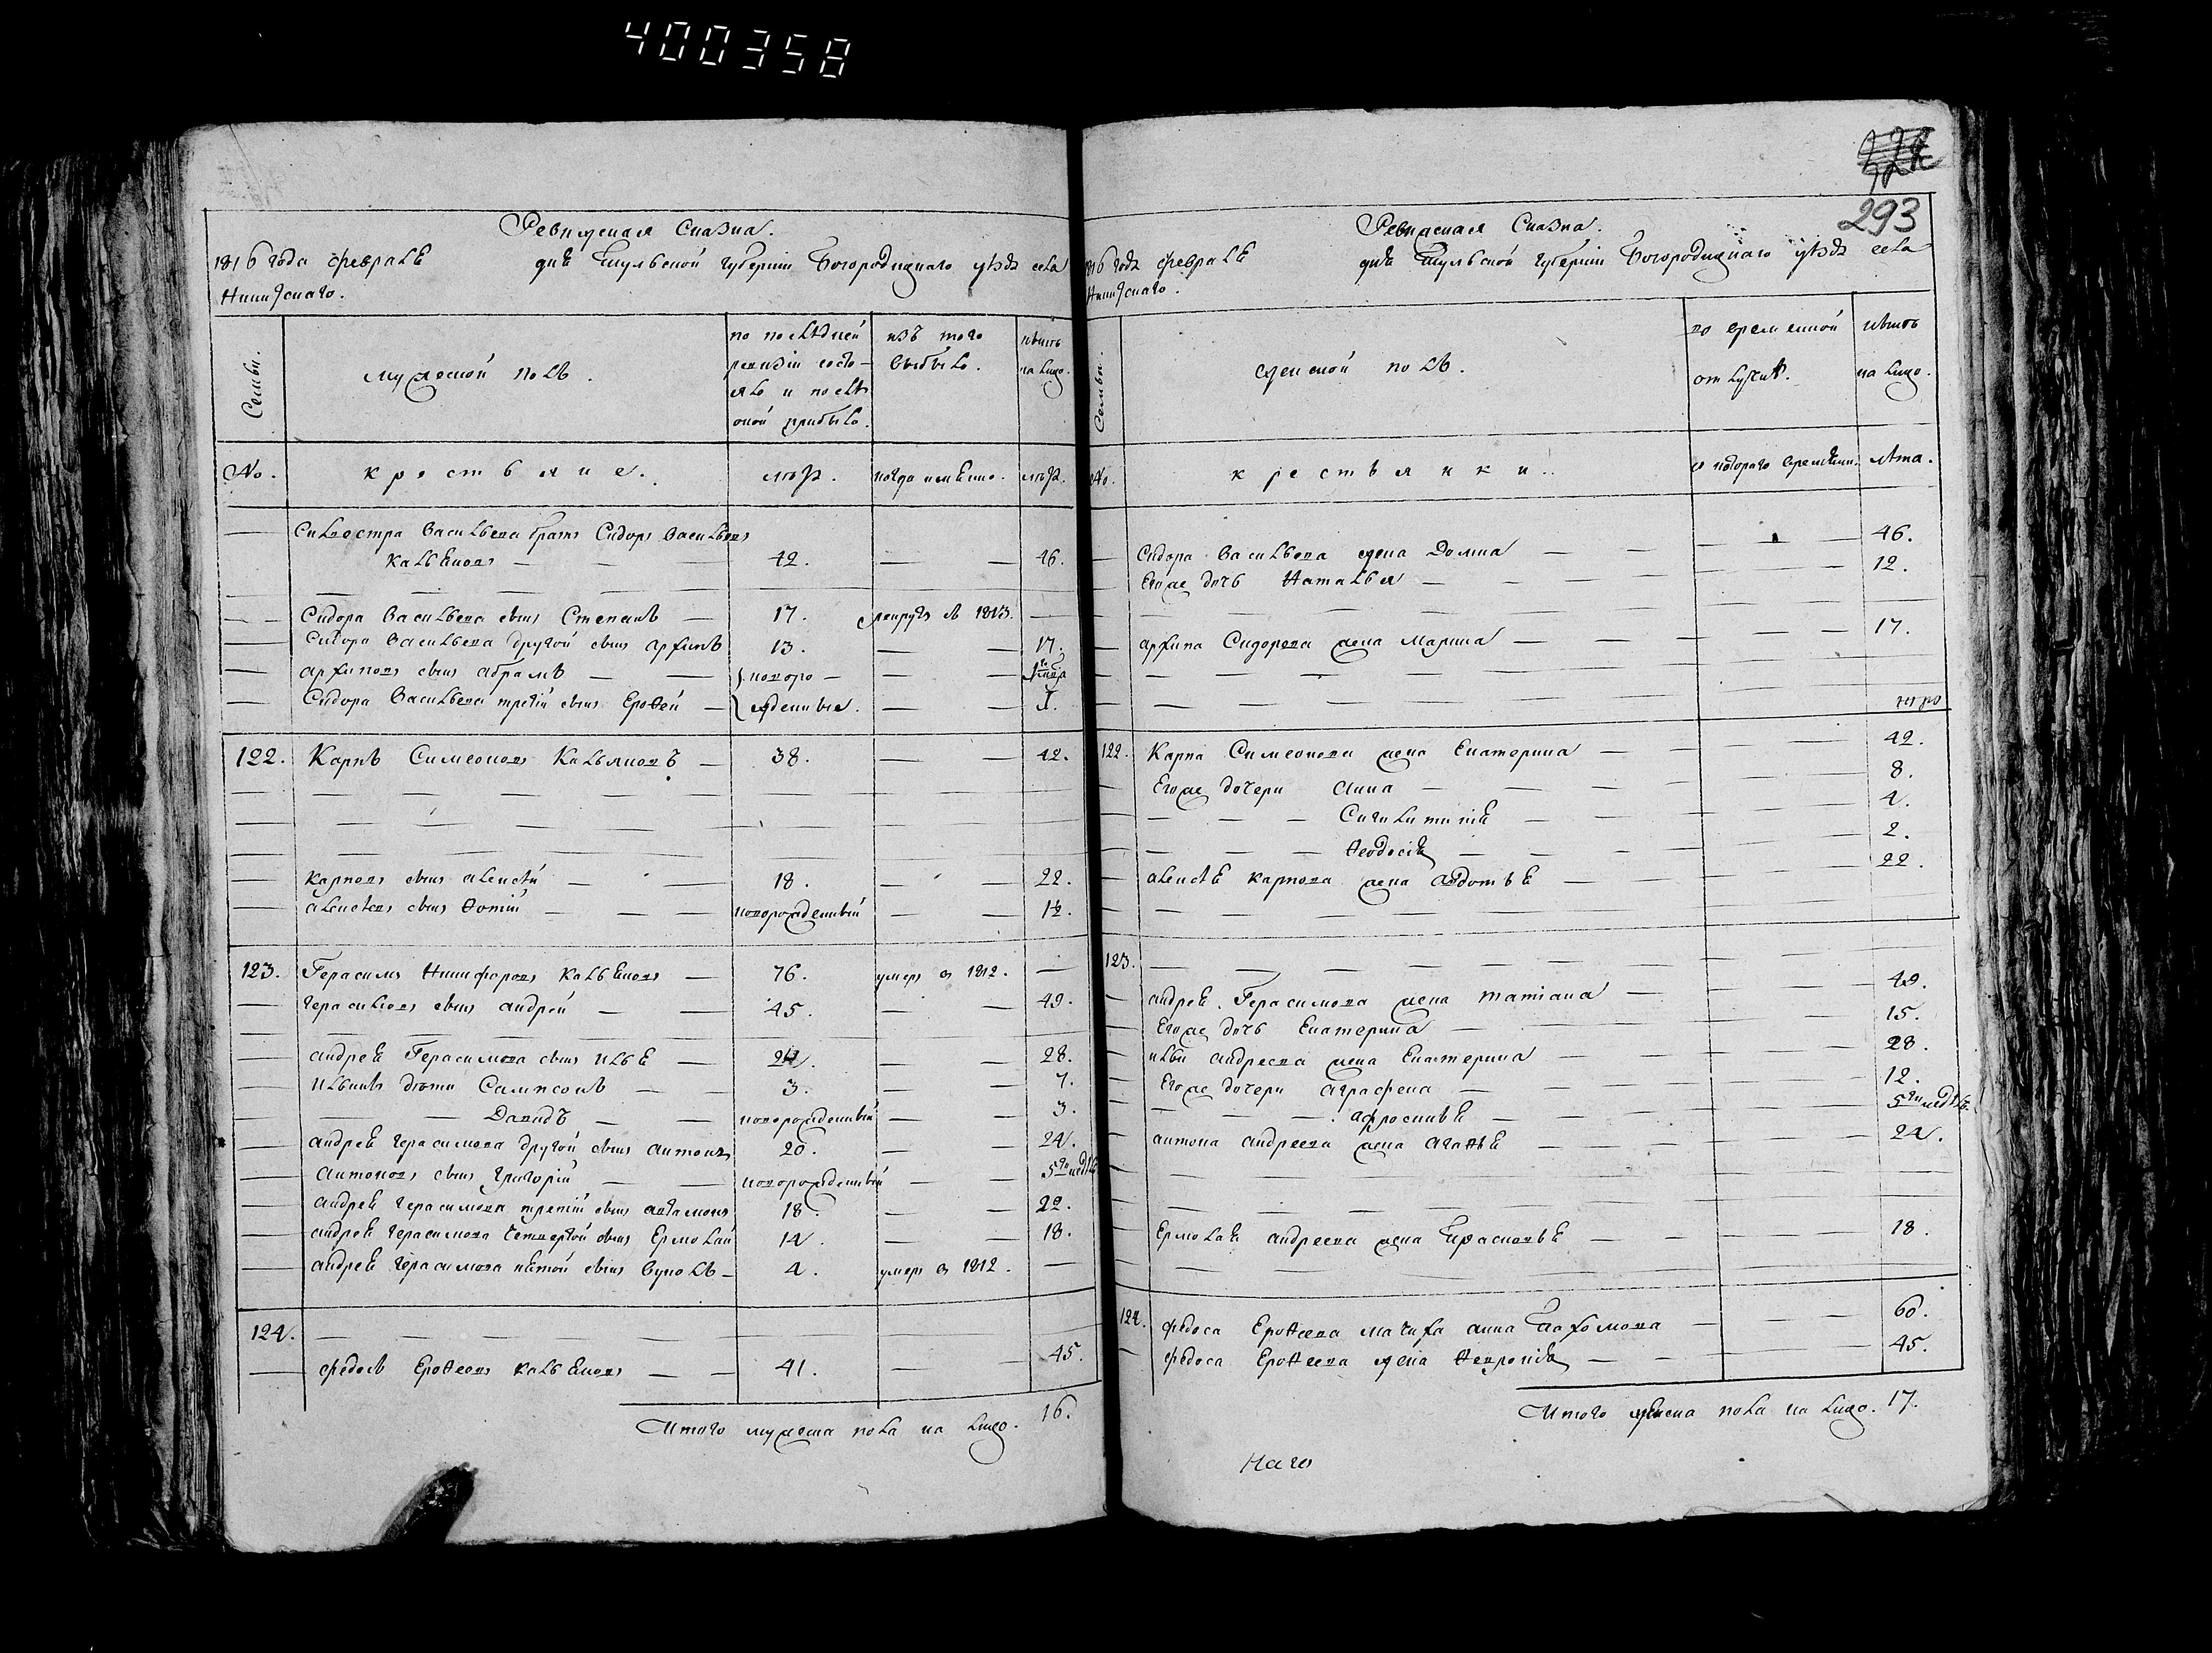 400358
293
Ревижская Сказка.
1816 года февраля дня Тульской губернии Богородицкаго уѣзда села
Никитскаго.
Семьи.
мужеской полъ.
по последней ревизіи состо-
яло и послѣ оной прибыло.
изъ того выбыло.
нынѣ на лицо.
No. крестьяне. лѣта. когда имянно. лѣта.
Силвестра Васильева братъ Сидоръ Васильевъ
Кальяновъ 42. 46.
Сидора Васильева сынъ Степанъ 17. рекрутъ в 1813.
Сидора Васильева другой сынъ Архипъ 13. 17.
Архиповъ сынъ Абрамъ новоро-
Сидора Васильева третій сынъ Ероѳей жденныя.
122. Карпъ Симеоновъ Кальяновъ 38. 42.
Карповъ сынъ Алексѣй 18. 22.
Алексѣевъ сынъ Ѳотій новорожденный 1½.
123. Герасимъ Никифоровъ Кальяновъ 76. умеръ в 1812.
Герасимовъ сынъ Андрей 45. 49.
Андрея Герасимова сынъ Илья 24. 28.
Ильины дѣти Сампсонъ 3. 7.
Давидъ новорожденный 3.
Андрея Герасимова другой сынъ Антонъ 20. 24.
Антоновъ сынъ Григорій новорожденный 5ти недѣль
Андрея Герасимова третій сынъ Автамонъ 18. 22.
Андрея Герасимова четвертой сынъ Ермолай 14. 18.
Андрея Герасимова пятой сынъ Вуколъ 4. умеръ в 1812.
124.
Федосъ Ероѳеевъ Кальяновъ 41. 45.
Итого мужеска пола на лицо. 16.
Ревижская Сказка.
1816 года февраля дня Тульской губернии Богородицкаго уѣзда села
Никитскаго.
Семьи.
женской полъ.
во временной отлучкѣ.
нынѣ на лицо.
No. крестьянки. с котораго времени. лѣта.
Сидора Васильева жена Домна 46.
Его же дочь Наталья 12.
Архипа Сидорова жена Марина 17.
122. Карпа Симеонова жена Екатерина 42.
Его же дочери Анна 8.
4.
Ѳеодосія 2.
Алексѣя Карпова жена Авдотья 22.
123.
Андрея Герасимова жена Татіана 49.
Его же дочь Екатерина 15.
Ильи Андреева жена Екатерина 28.
Его же дочери Аграфена 12.
Афросинья 5ти недѣль.
Антона Андреева жена Агаѳья 24.
Ермолая Андреева жена Прасковья 18.
124. Федоса Ероѳеева мачиха Анна Пахомова 60.
Федоса Ероѳеева жена Ѳевронія 45.
Итого женска пола на лицо. 17.